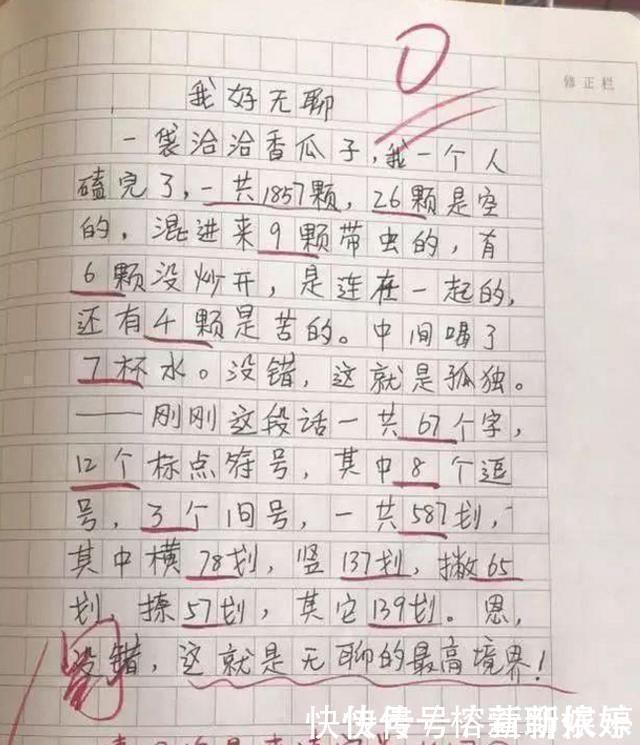 修正栏
我好无聊
一袋洽洽香瓜子，我一个人
磕完了，一共1857颗，26颗是空
的，混进来9颗带虫的，有
6颗没炒开，是连在一起的，
还有4颗是苦的。中间喝了
7杯水。没错，这就是孤独。
——刚刚这段话一共67个字，
12个标点符号，其中8个逗
号，3个问号，一共587划，
其中横78划，竖137划，撇65
划，捺57划，其它139划。恩，
没错，这就是无聊的最高境界！
快快传号